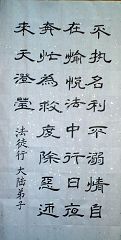 不执名利不溺情自
在愉悦法中行日夜
奔忙為救度除惡迎
来天澄瑩
法徒行 大陆弟子